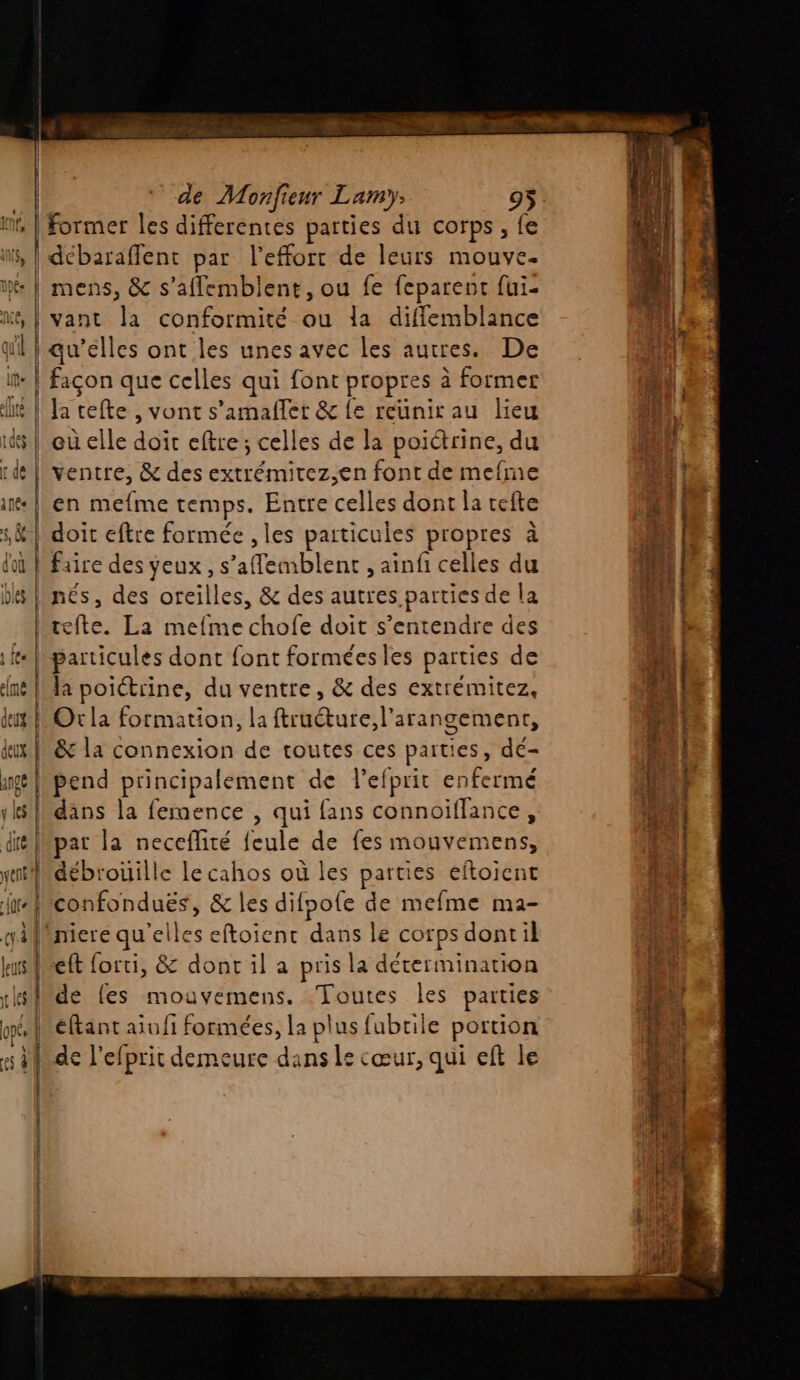 de Monſieur Lamy. 95
former les differentes parties du corps, ſe
débaraſſent par l'effort de leurs mouve-
mens, & s'aſſemblent, ou ſe ſeparent ſui-
vant la conformité ou la diſſemblance
qu'elles ont les unes avec les autres. De
façon que celles qui ſont propres à former
la teſte, vont s'amaſſer & ſe reünir au lieu
où elle doit eſtre; celles de la poictrine, du
ventre, & des extrémitez, en font de meſme
en meſme temps. Entre celles dont la teſte
doit eſtre formée, les particules propres à
faire des yeux, s'aſſemblent, ainſi celles du
nés, des oreilles, & des autres parties de la
teſte. La meſme choſe doit s'entendre des
particules dont ſont formées les parties de
la poictrine, du ventre, & des extrémitez.
Or la formation, la ſtructure, l'arangement,
& la connexion de toutes ces parties, dé-
pend principalement de l'eſprit enfermé
dans la ſemence, qui ſans connoiſſance,
par la neceſſité ſeule de ſes mouvemens,
débroüille le cahos où les parties eſtoient
confonduës, & les diſpoſe de meſme ma-
niere qu'elles eſtoient dans le corps dont il
eſt ſorti, & dont il a pris la détermination
de ſes mouvemens. Toutes les parties
eſtant ainſi formées, la plus ſubtile portion
de l'eſprit demeure dans le cœur, qui eſt le